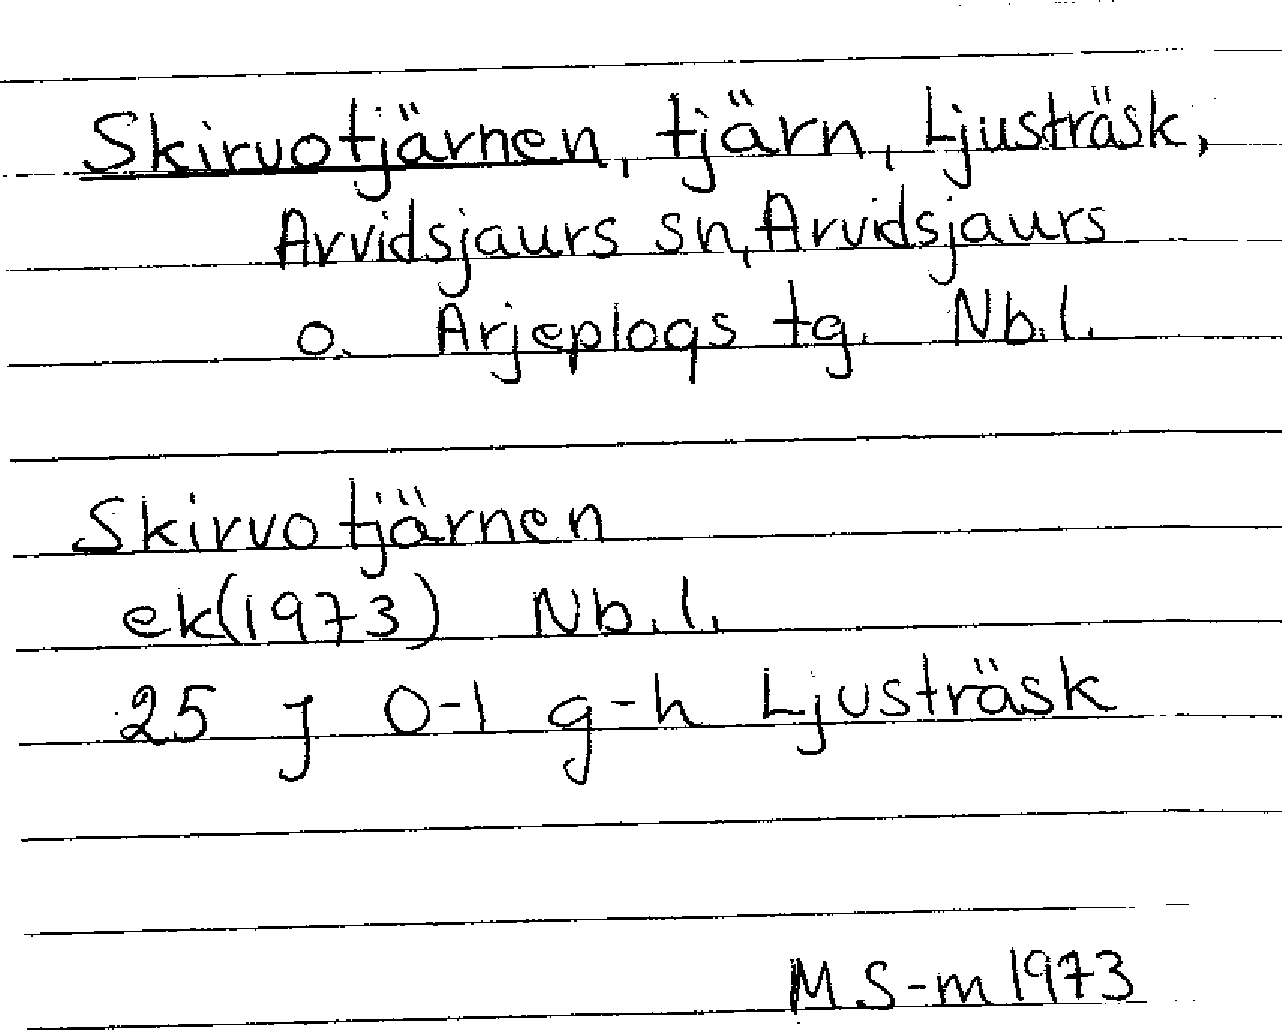 Skirvotjärnen, tjärn, Ljusträsk,
Arvidsjaurs sn, Arvidsjaurs
o. Arjeplogs tg. Nb.l.
Skirvotjärnen
ek(1973) Nb.l.
25 J 0-1 g-h Ljusträsk
M S-m 1973